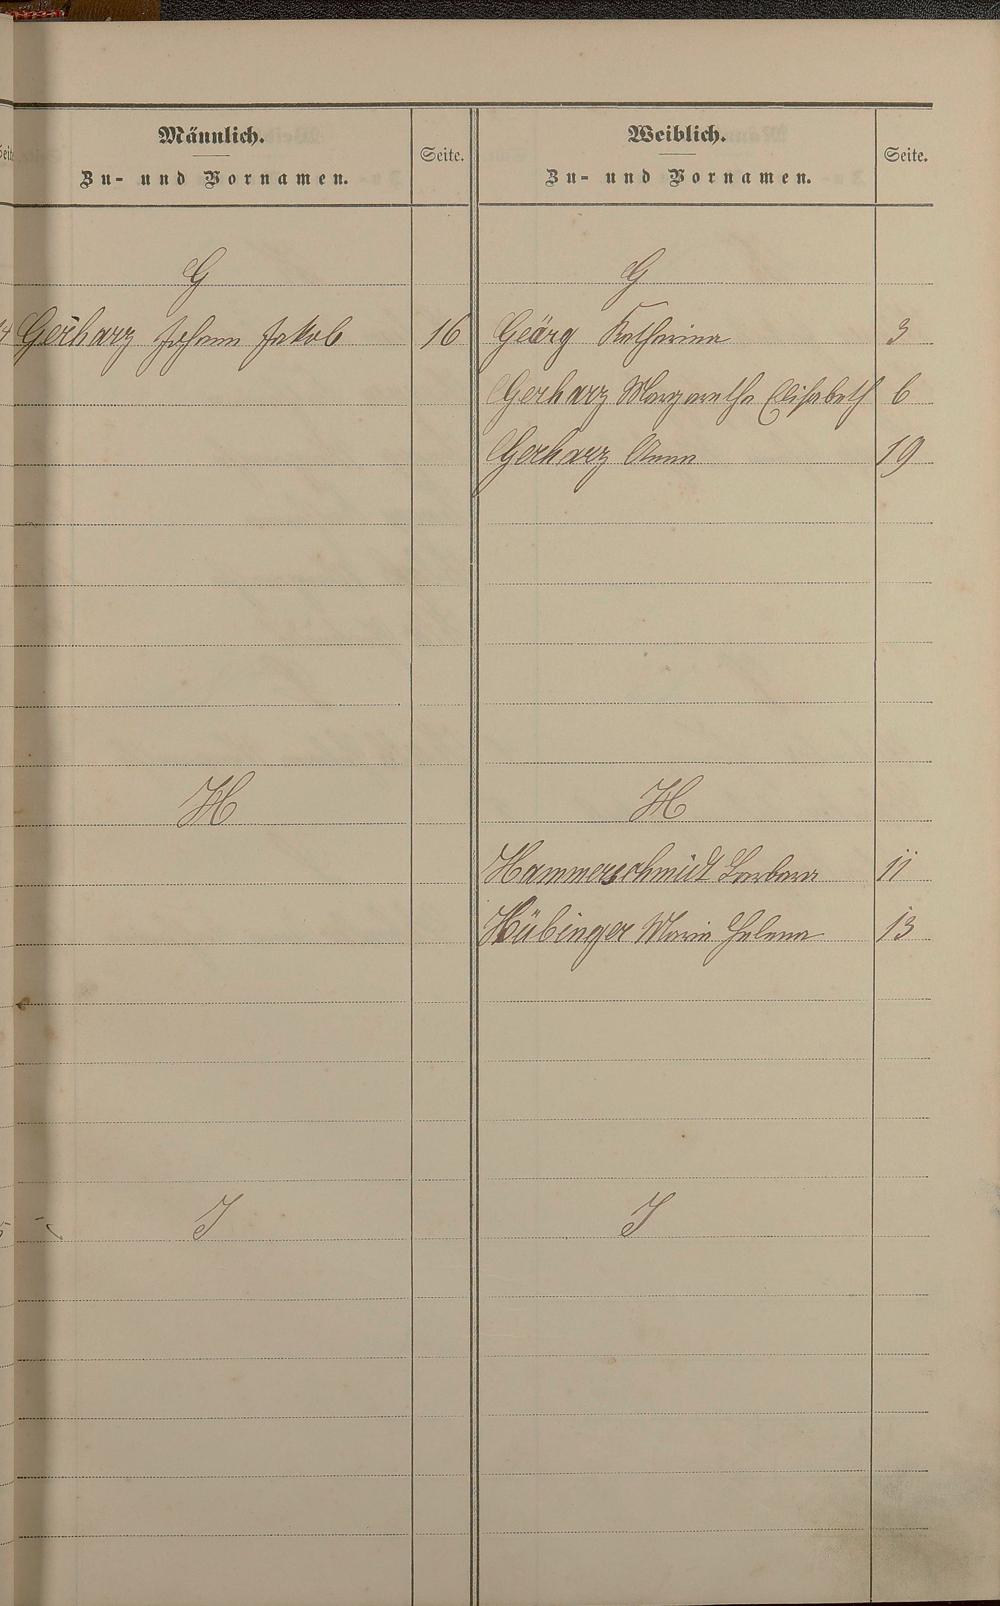 Männlich.
Zu- und Vornamen.
Seite.
Weiblich.
Zu- und Vornamen.
Seite.
G
G
Gerharz Johann Jakob 16
Georg Katharina 3
Gerharz Margaretha Elisabeth 6
Gerharz Anna 19
H
H
Hammerschmidt Barbara 11
Hübinger Maria Helena 13
J
J